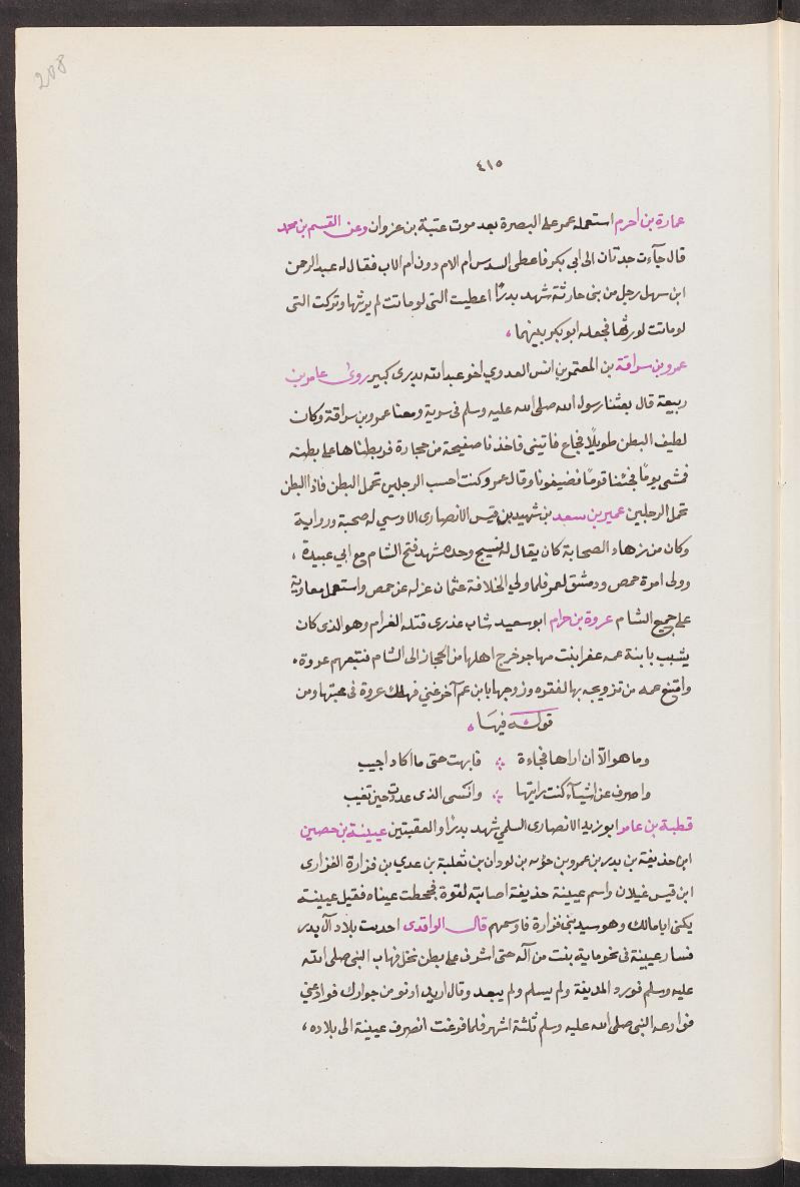 208
٤١٥
عمارة بن احرم استعمله عمر على البصرة بعد موت عتبة بن عزوان وعن القسم بن محمد
قال جآءت جدتان الى ابى بكر فاعطى السدس ام الام دون ام الاب فقال له عبد الرحمن
ابن سهل رجل من بنى حارثة شهد بدرًا اعطيت التى لو ماتت لم يرثها وتركت التى
لو ماتت لورثها فجعله ابو بكر بينهما ،
عمرو بن سراقة بن المعتمر بن انس العدوي اخو عبد الله بدرى كبير روى عامر بن
ربيعة قال بعثنا رسول الله صلى الله عليه وسلم فى سرية ومعنا عمرو بن سراقة وكان
لطيف البطن طويلًا فجاع فاتينى فاخذنا صفيحة من حجارة فربطناها على بطنه
فمشى يومًا فجئنا قومًا فضيفونا وقال عمرو كنت احسب الرجلين تحمل البطن فاذا البطن
تحمل الرجلين عمير بن سعد بن شهيد بن قيس الانصارى الاوسي له صحبة ورواية
وكان من زهاد الصحابة كان يقال له نسيج وحده شهد فتح الشام مع ابي عبيدة ،
وولى امرة حمص ودمشق لعمر فلما ولي الخلافة عثمان عزله عن حمص واستعمل معاوية
على جميع الشام عروة بن حرام ابو سعيد شاب عذرى قتله الغرام وهو الذى كان
يشبب بابنة عمه عفرا بنت مهاجر خرج اهلها من الحجاز الى الشام فتبعهم عروة ،
وامتنع عمه من تزويجه بها لفقره وزوجها بابن عم آخر غني فهلك عروة فى محبتها ومن
قوله فيها ،
وما هو الآ ان اراها فجاءة ∴ فابهت حتى ما اكاد اجيب
واصرف عن اشيآء كنت رايتها ∴ وانسى الذى عددت حين تغيب
قطبة بن عامر ابو زيد الانصارى السلمي شهد بدرًا والعقبتين عيينة بن حصين
ابن حذيفة بن بدر بن عمرو بن حؤيه بن لودان بن ثعلبة بن عدي بن فزارة الفزارى
ابن قيس غيلان واسم عيينة حذيفة اصابته لقوة فجحظت عيناه فقيل عيينة
يكنى ابا مالك وهو سيد بنى فزارة فارسهم قال الواقدى اجدبت بلاد آل بدر
فسار عيينة فى نحو ماية بنت من آله حتى اشرف على بطن نخل فهاب النبى صلى الله
عليه وسلم فورد المدينة ولم يسلم ولم يبعد وقال اريد ادنو من جوارك فوادعني
فوادعه النبى صلى الله عليه وسلم ثلثة اشهر فلما فرغت انصرف عيينة الى بلاده ،